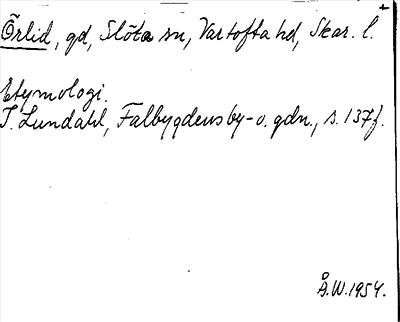 Örlid, gd, Slöta sn, Vartofta hd, Skar. l.
Etymologi.
I. Lundahl, Falbygdens by- o. gdn., s. 137f.
Å.W. 1954.